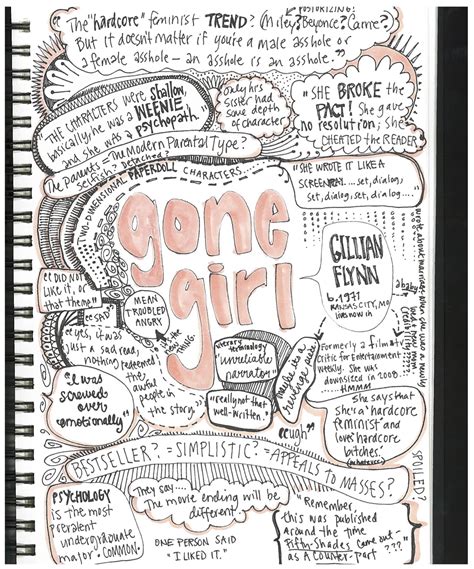 POSTURIZING?
The "hardcore" feminist TREND? (Miley? Beyonce? Carrie?)
But it doesn't matter if you're a male asshole or
a female asshole — an asshole is an asshole."
THE CHARACTERS were shallow,
basically. He was a WEENIE
and she was a psychopath."
"only his
sister had
some depth
of character
"SHE BROKE the
PACT! She gave
no resolution; she
CHEATED the READER
The parents — The Modern Parental Type?
selfish? Detached?
TWO-DIMENSIONAL PAPERDOLL CHARACTERS...
"SHE WROTE IT LIKE A
SCREENPLAY.... set, dialog,
set, dialog, set, dialog....
gone
girl
GILLIAN
FLYNN
b. 1971
KANSAS CITY, MO
lives now in
wrote about marriage when she was a newly
a baby
"DID NOT
LIKE IT, or
that theme"
MEAN
TROUBLED
ANGRY
THING.
"SAD"
"yes, it was
just a sad read,
nothing redeemed
the awful
people in
the story."
literary terminology
"unreliable
narrator"
"really not that
well-written."
maybe its a
revenge
Formerly a film & tv
critic for Entertainment
Weekly. She was
downsized in 2008.
HMMM
"I was
screwed
over
emotionally"
"ugh"
She says that
she's a "hardcore
feminist" and
loves "hardcore
bitches."
(whatever)
SPOILED?
BESTSELLER? = SIMPLISTIC? = APPEALS TO MASSES?
PSYCHOLOGY
is the most
prevalent
undergraduate
major. COMMON.
They say....
The movie ending will be
different.
ONE PERSON SAID
"I LIKED IT."
"Remember
this was published
around the time
Fifty-Shades came out —
as a counter-part?"